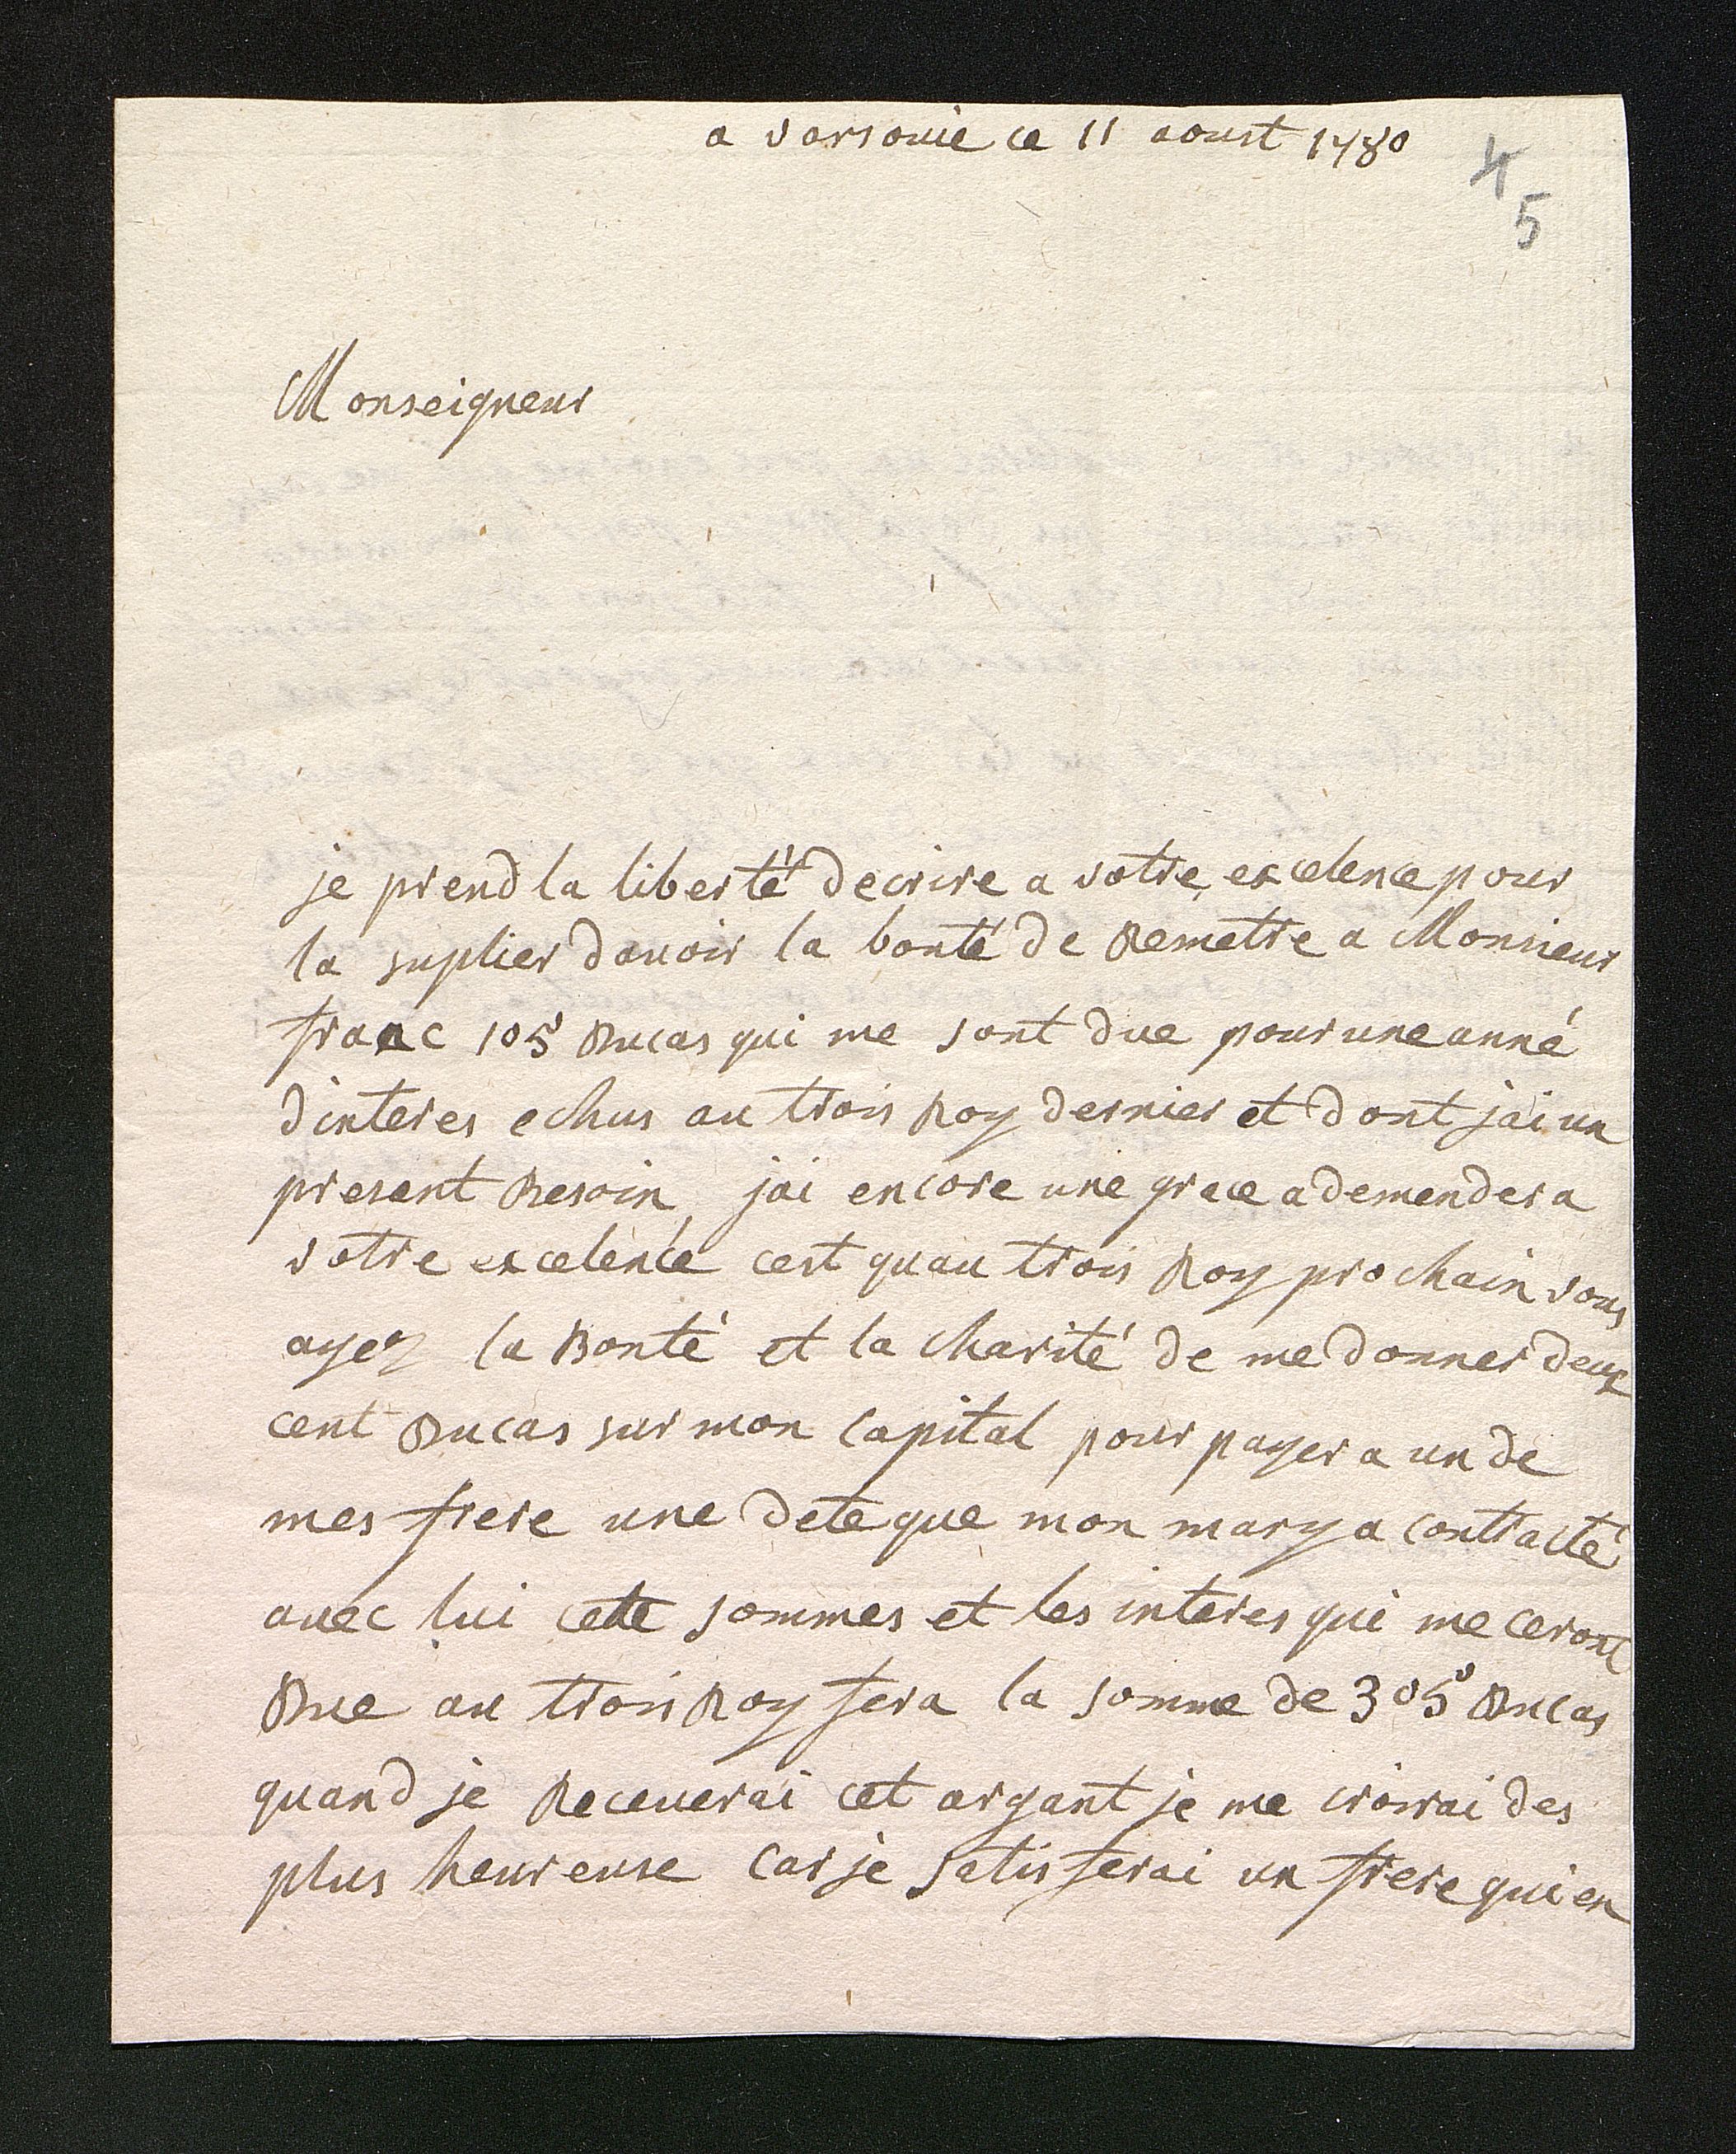 a varsovie ce 11 aoust 1780
4
5
Monseigneur
je prend la liberté decrire a votre excelence pour
la suplier dauoir la bonté de Remettre a Monsieur
franc 105 Ducas qui me sont due pour une anné
dinteres echus au trois Roy dernier et dont jai un
presant Besoin, jai encore une grace a demender a
votre excelence cest quau trois Roy prochain vous
ayez la Bonté et la charité de me donner deux
cent Ducas sur mon capital pour payer a un de
mes frere une dete que mon mary a contracté
auec lui cete sommes et les interes qui me ceront
Due au trois Roy fera la somme de 305 Ducas
quand je Receuerai cet argant je me croirai des
plus heureuse car je satisferai un frere qui en